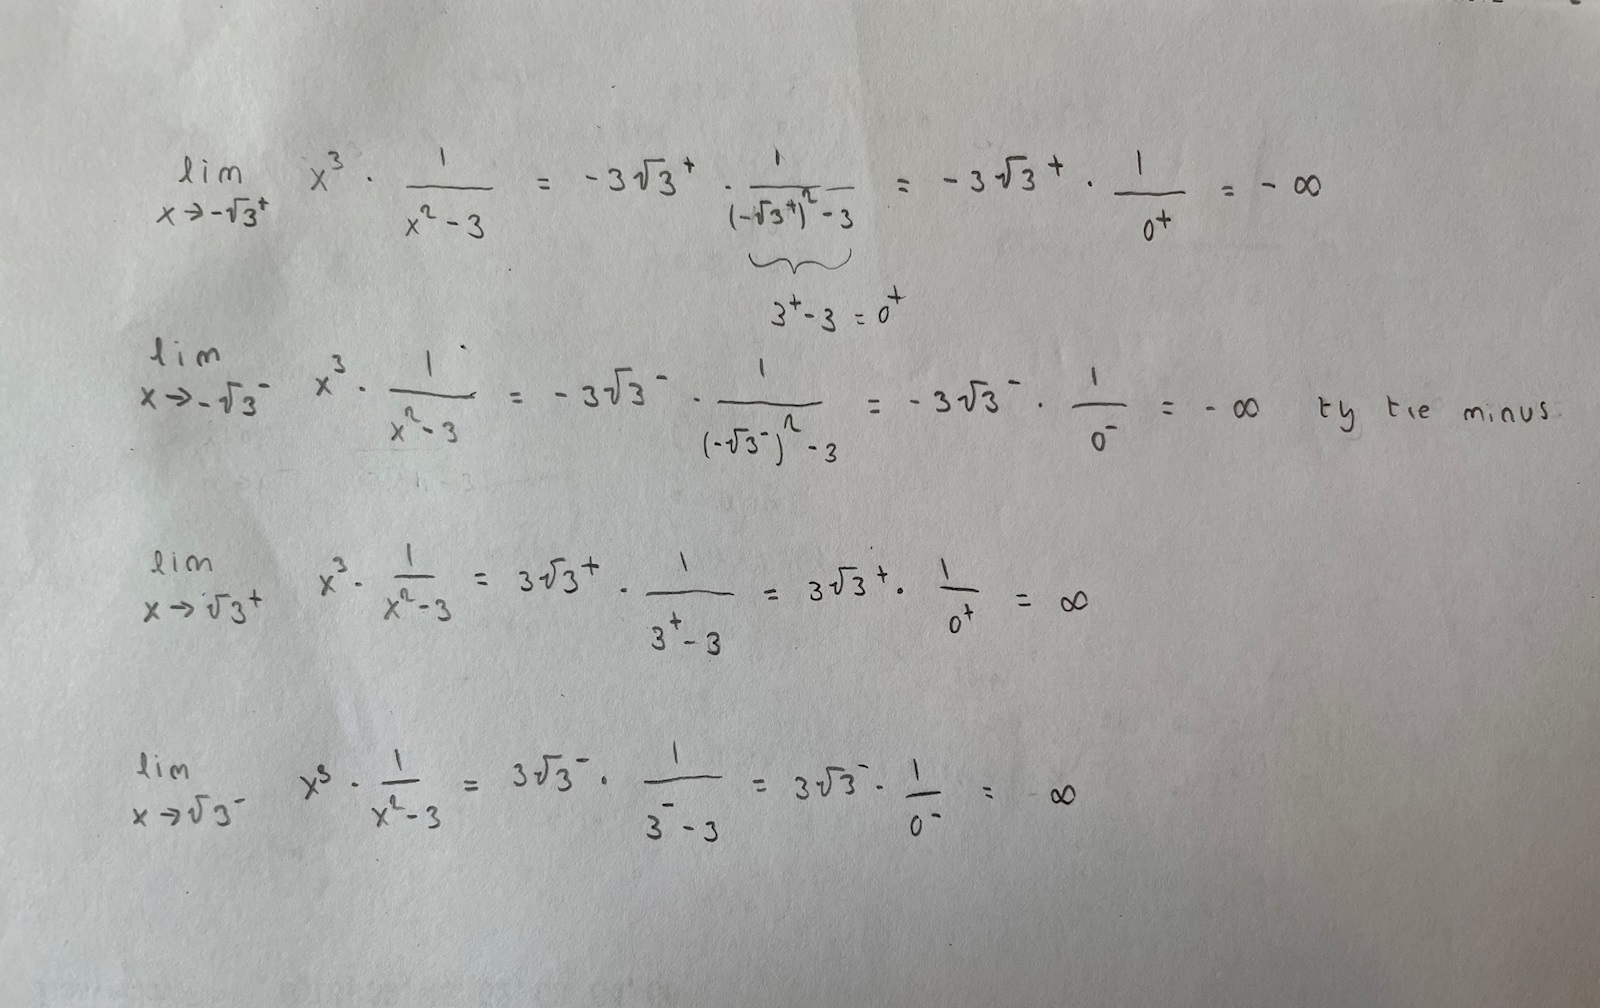 lim x→-√3⁺ x³ · 1/(x²-3) = -3√3⁺ · 1/((-√3⁺)²-3) = -3√3⁺ · 1/0⁺ = -∞
3⁺-3 = 0⁺
lim x→-√3⁻ x³ · 1/(x²-3) = -3√3⁻ · 1/((-√3⁻)²-3) = -3√3⁻ · 1/0⁻ = -∞ ty tre minus
lim x→√3⁺ x³ · 1/(x²-3) = 3√3⁺ · 1/(3⁺-3) = 3√3⁺ · 1/0⁺ = ∞
lim x→√3⁻ x³ · 1/(x²-3) = 3√3⁻ · 1/(3⁻-3) = 3√3⁻ · 1/0⁻ = ∞